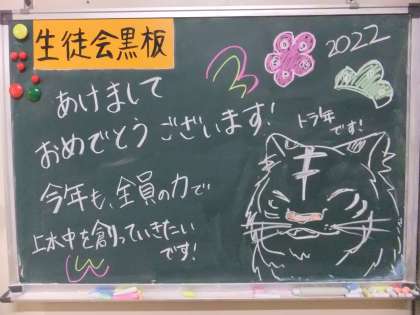 生徒会黒板
2022
あけまして
おめでとうございます!
トラ年
です!
今年も、全員の力で
上水中を創っていきたい
です!